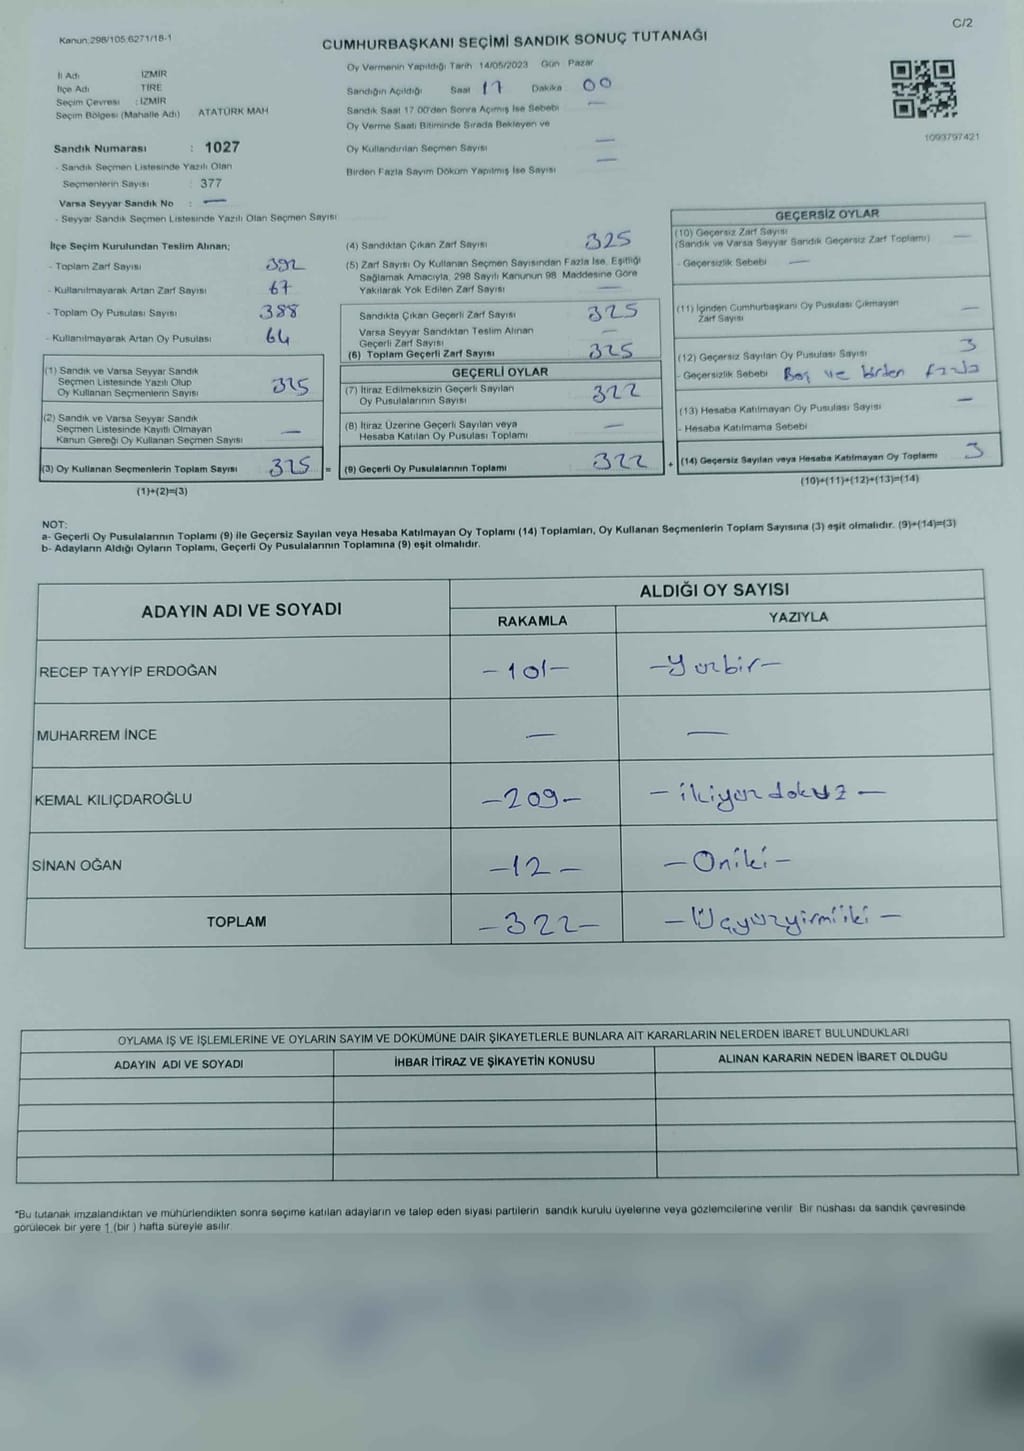 C/2
Kanun:298/105.6271/18-1
CUMHURBAŞKANI SEÇİMİ SANDIK SONUÇ TUTANAĞI
İl Adı İZMİR
İlçe Adı TİRE
Seçim Çevresi : İZMİR
Seçim Bölgesi (Mahalle Adı) ATATÜRK MAH
Sandık Numarası : 1027
- Sandık Seçmen Listesinde Yazılı Olan
Seçmenlerin Sayısı : 377
Varsa Seyyar Sandık No : —
- Seyyar Sandık Seçmen Listesinde Yazılı Olan Seçmen Sayısı
Oy Vermenin Yapıldığı Tarih 14/05/2023 Gün Pazar
Sandığın Açıldığı Saat 17 Dakika 00
Sandık Saat 17.00'den Sonra Açılmış İse Sebebi —
Oy Verme Saati Bitiminde Sırada Bekleyen ve
Oy Kullandırılan Seçmen Sayısı —
Birden Fazla Sayım Döküm Yapılmış İse Sayısı —
1093797421
İlçe Seçim Kurulundan Teslim Alınan;
- Toplam Zarf Sayısı 392
- Kullanılmayarak Artan Zarf Sayısı 67
- Toplam Oy Pusulası Sayısı 388
- Kullanılmayarak Artan Oy Pusulası 64
(1) Sandık ve Varsa Seyyar Sandık
Seçmen Listesinde Yazılı Olup
Oy Kullanan Seçmenlerin Sayısı 325
(2) Sandık ve Varsa Seyyar Sandık
Seçmen Listesinde Kayıtlı Olmayan
Kanun Gereği Oy Kullanan Seçmen Sayısı —
(3) Oy Kullanan Seçmenlerin Toplam Sayısı 325 =
(1)+(2)=(3)
(4) Sandıktan Çıkan Zarf Sayısı 325
(5) Zarf Sayısı Oy Kullanan Seçmen Sayısından Fazla İse, Eşitliği
Sağlamak Amacıyla, 298 Sayılı Kanunun 98. Maddesine Göre
Yakılarak Yok Edilen Zarf Sayısı —
Sandıkta Çıkan Geçerli Zarf Sayısı 325
Varsa Seyyar Sandıktan Teslim Alınan
Geçerli Zarf Sayısı —
(6) Toplam Geçerli Zarf Sayısı 325
GEÇERLİ OYLAR
(7) İtiraz Edilmeksizin Geçerli Sayılan
Oy Pusulalarının Sayısı 322
(8) İtiraz Üzerine Geçerli Sayılan veya
Hesaba Katılan Oy Pusulası Toplamı —
(9) Geçerli Oy Pusulalarının Toplamı 322 +
GEÇERSİZ OYLAR
(10) Geçersiz Zarf Sayısı
(Sandık ve Varsa Seyyar Sandık Geçersiz Zarf Toplamı) —
- Geçersizlik Sebebi —
(11) İçinden Cumhurbaşkanı Oy Pusulası Çıkmayan
Zarf Sayısı —
(12) Geçersiz Sayılan Oy Pusulası Sayısı 3
- Geçersizlik Sebebi Boş ve birden fazla
(13) Hesaba Katılmayan Oy Pusulası Sayısı —
- Hesaba Katılmama Sebebi
(14) Geçersiz Sayılan veya Hesaba Katılmayan Oy Toplamı 3
(10)+(11)+(12)+(13)=(14)
NOT:
a- Geçerli Oy Pusulalarının Toplamı (9) ile Geçersiz Sayılan veya Hesaba Katılmayan Oy Toplamı (14) Toplamları, Oy Kullanan Seçmenlerin Toplam Sayısına (3) eşit olmalıdır. (9)+(14)=(3)
b- Adayların Aldığı Oyların Toplamı, Geçerli Oy Pusulalarının Toplamına (9) eşit olmalıdır.
ADAYIN ADI VE SOYADI ALDIĞI OY SAYISI
RAKAMLA YAZIYLA
RECEP TAYYİP ERDOĞAN -101- -Yüzbir-
MUHARREM İNCE — —
KEMAL KILIÇDAROĞLU -209- -ikiyüzdokuz-
SİNAN OĞAN -12- -Oniki-
TOPLAM -322- -Üçyüzyirmiiki-
OYLAMA İŞ VE İŞLEMLERİNE VE OYLARIN SAYIM VE DÖKÜMÜNE DAİR ŞİKAYETLERLE BUNLARA AİT KARARLARIN NELERDEN İBARET BULUNDUKLARI
ADAYIN ADI VE SOYADI İHBAR İTİRAZ VE ŞİKAYETİN KONUSU ALINAN KARARIN NEDEN İBARET OLDUĞU
*Bu tutanak imzalandıktan ve mühürlendikten sonra seçime katılan adayların ve talep eden siyasi partilerin sandık kurulu üyelerine veya gözlemcilerine verilir. Bir nüshası da sandık çevresinde
görülecek bir yere 1 (bir ) hafta süreyle asılır.